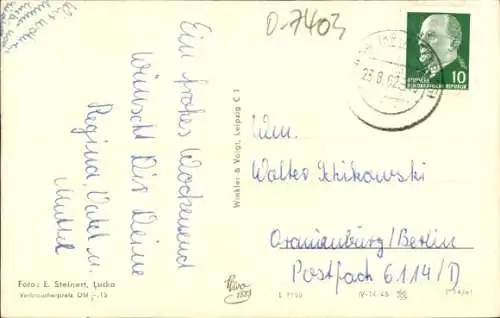 D-7403
23.8.62
DEUTSCHE
DEMOKRATISCHE REPUBLIK
10
Ein frohes Wochenend
wünscht Dir Deine
Regina, Vatel u.
Muttel
Winkler & Voigt, Leipzig C 1
Walter Schikowski
Oranienburg/Berlin
Postfach 6114/D
Foto: E. Steinert, Lucka
Verbraucherpreis DM -.15
IV-14-48